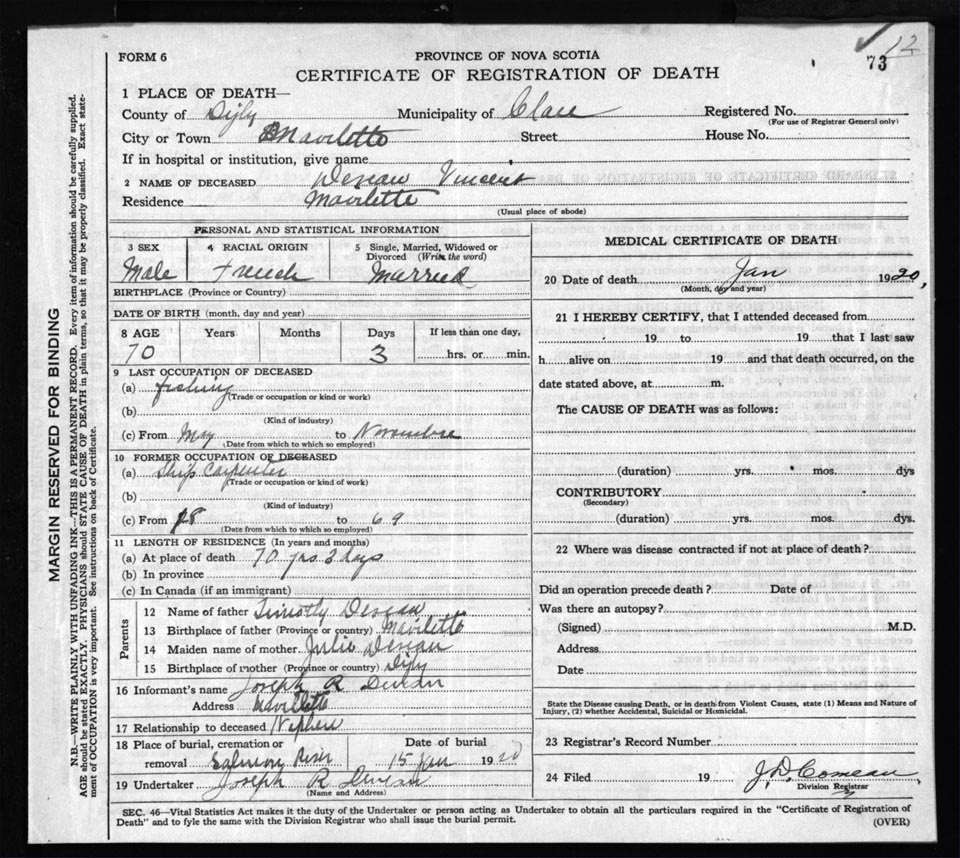 12
73
FORM 6
PROVINCE OF NOVA SCOTIA
CERTIFICATE OF REGISTRATION OF DEATH
1 PLACE OF DEATH—
County of Digby Municipality of Clare Registered No.
(For use of Registrar General only)
City or Town Mavilette Street House No.
If in hospital or institution, give name
2 NAME OF DECEASED Vincent
Residence Mavilette
(Usual place of abode)
PERSONAL AND STATISTICAL INFORMATION
3 SEX 4 RACIAL ORIGIN 5 Single, Married, Widowed or Divorced (Write the word)
Male French Married
BIRTHPLACE (Province or Country)
DATE OF BIRTH (month, day and year)
8 AGE Years Months Days If less than one day,
70 3 hrs. or min.
9 LAST OCCUPATION OF DECEASED
(a) fishing
(Trade or occupation or kind or work)
(b)
(Kind of industry)
(c) From May to Novembre
(Date from which to which so employed)
10 FORMER OCCUPATION OF DECEASED
(a) Ship Carpenter
(Trade or occupation or kind of work)
(b)
(Kind of industry)
(c) From 18 to 69
(Date from which to which so employed)
11 LENGTH OF RESIDENCE (In years and months)
(a) At place of death 70 yrs 3 days
(b) In province
(c) In Canada (if an immigrant)
Parents
12 Name of father Timothy
13 Birthplace of father (Province or country) Mavilette
14 Maiden name of mother Julie
15 Birthplace of mother (Province or country) Digby
16 Informant's name Joseph R
Address Mavilette
17 Relationship to deceased Nephew
18 Place of burial, cremation or removal Salmon River Date of burial 15 Jan 1920
19 Undertaker Joseph R
(Name and Address)
MEDICAL CERTIFICATE OF DEATH
20 Date of death Jan 1920,
(Month, day and year)
21 I HEREBY CERTIFY, that I attended deceased from
19 to 19 that I last saw
h alive on 19 and that death occurred, on the
date stated above, at m.
The CAUSE OF DEATH was as follows:
(duration) yrs. mos. dys
CONTRIBUTORY
(Secondary)
(duration) yrs. mos. dys.
22 Where was disease contracted if not at place of death?
Did an operation precede death? Date of
Was there an autopsy?
(Signed) M.D.
Address
Date
State the Disease causing Death, or in death from Violent Causes, state (1) Means and Nature of
Injury, (2) whether Accidental, Suicidal or Homicidal.
23 Registrar's Record Number
24 Filed 19 J. D. Comeau
Division Registrar
SEC. 46—Vital Statistics Act makes it the duty of the Undertaker or person acting as Undertaker to obtain all the particulars required in the "Certificate of Registration of
Death" and to fyle the same with the Division Registrar who shall issue the burial permit.
(OVER)
MARGIN RESERVED FOR BINDING
N.B.—WRITE PLAINLY WITH UNFADING INK—THIS IS A PERMANENT RECORD. Every item of information should be carefully supplied.
AGE should be stated EXACTLY. PHYSICIANS should STATE CAUSE OF DEATH in plain terms, so that it may be properly classified. Exact state-
ment of OCCUPATION is very important. See instructions on back of Certificate.